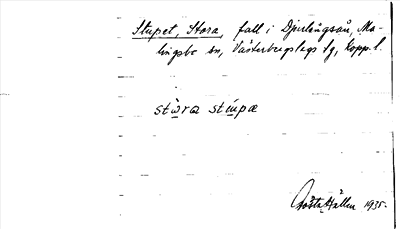 Stupet, Stora, fall i Djurlångsån, Ma-
lingsbo sn, Västerbergslags tg, Kopp. l.
stωra stupæ
Gösta Hallén 1935.